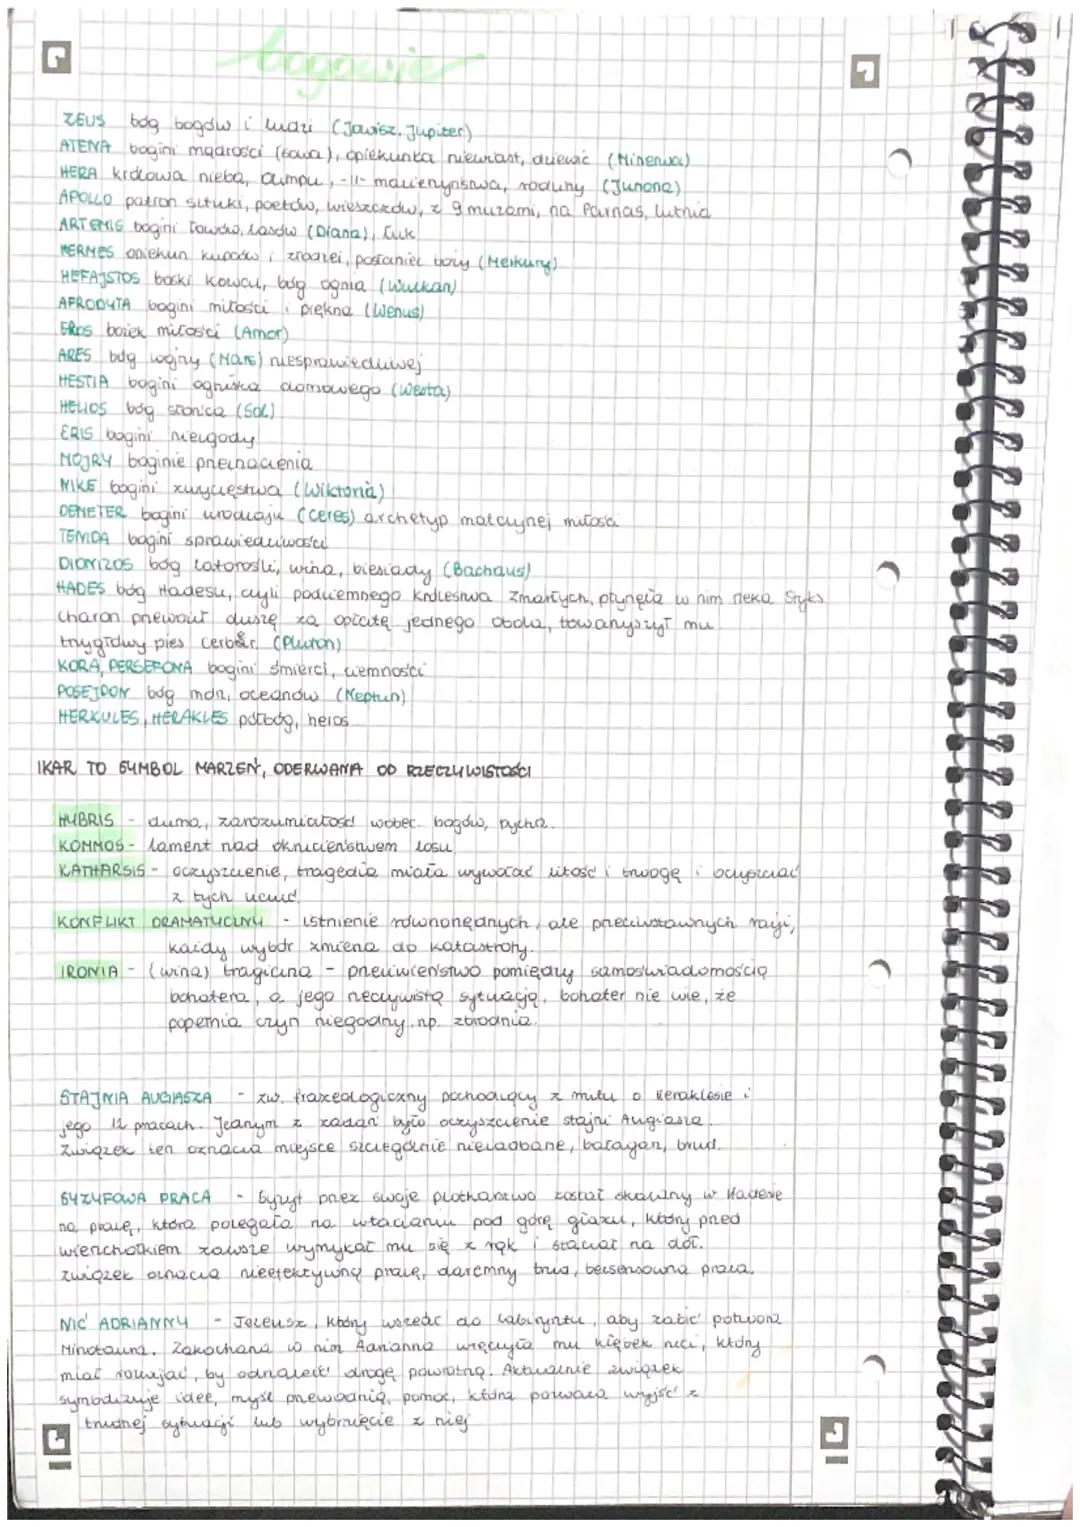 bogowie
ZEUS bóg bogów i ludzi (Jowisz, Jupiter)
ATENA bogini mądrości (sowa), opiekunka niewiast, dziewic (Minerwa)
HERA królowa nieba, Olimpu, -||- małżeństwa, rodziny (Junona)
APOLLO patron sztuki, poetów, wieszczów, z 9 muzami, na Parnas, lutnia
ARTEMIS bogini łowów, lasów (Diana), łuk
HERMES opiekun kupców i złodziei, posłaniec boży (Merkury)
HEFAJSTOS boski kowal, bóg ognia (Wulkan)
AFRODYTA bogini miłości i piękna (Wenus)
EROS bożek miłości (Amor)
ARES bóg wojny (Mars) niesprawiedliwej
HESTIA bogini ogniska domowego (Westa)
HELIOS bóg słońca (Sol)
ERIS bogini niezgody
MOJRY boginie przeznaczenia
NIKE bogini zwycięstwa (Wiktoria)
DEMETER bogini urodzaju (Ceres) archetyp matczynej miłości
TEMIDA bogini sprawiedliwości
DIONIZOS bóg latorośli, wina, biesiady (Bachaus)
HADES bóg Hadesu, czyli podziemnego królestwa zmarłych, płynęła w nim rzeka Styks
charon przewoził duszę za opłatę jednego obola, towarzyszył mu
trzygłowy pies cerber. (Pluton)
KORA, PERSEFONA bogini śmierci, ciemności
POSEJDON bóg mórz, oceanów (Neptun)
HERKULES, HERAKLES półbóg, heros
IKAR TO SYMBOL MARZEŃ, ODERWANIA OD RZECZYWISTOŚCI
HYBRIS - duma, zarozumiałość wobec bogów, pycha.
KOMMOS - lament nad okrucieństwem losu
KATHARSIS - oczyszczenie, tragedia miała wywołać litość i trwogę i oczyszczać
z tych uczuć.
KONFLIKT DRAMATYCZNY - istnienie równorzędnych, ale przeciwstawnych racji,
każdy wybór zmierza do katastrofy.
IRONIA - (wina) tragiczna - przeciwieństwo pomiędzy samoświadomością
bohatera, a jego rzeczywistą sytuacją, bohater nie wie, że
popełnia czyn niegodny np. zbrodnia.
STAJNIA AUGIASZA - zw. frazeologiczny pochodzący z mitu o Heraklesie i
jego 12 pracach. Jednym z zadań było oczyszczenie stajni Augiasza.
Związek ten oznacza miejsce szczególnie niezadbane, bałagan, brud.
SYZYFOWA PRACA - Syzyf przez swoje plotkarstwo został skazany w Hadesie
na pracę, która polegała na wtaczaniu pod górę głazu, który przed
wierzchołkiem zawsze wymykał mu się z rąk i staczał na dół.
związek oznacza nieefektywną pracę, daremny trud, bezsensowna praca.
NIĆ ADRIANNY - Tezeusz, który wszedł do labiryntu, aby zabić potwora
Minotaura. Zakochana w nim Adrianna wręczyła mu kłębek nici, który
miał rozwijać, by odnaleźć drogę powrotną. Aktualnie związek
symbolizuje ideę, myśl przewodnią, pomoc, która pozwala wyjść z
trudnej sytuacji lub wybrnięcie z niej